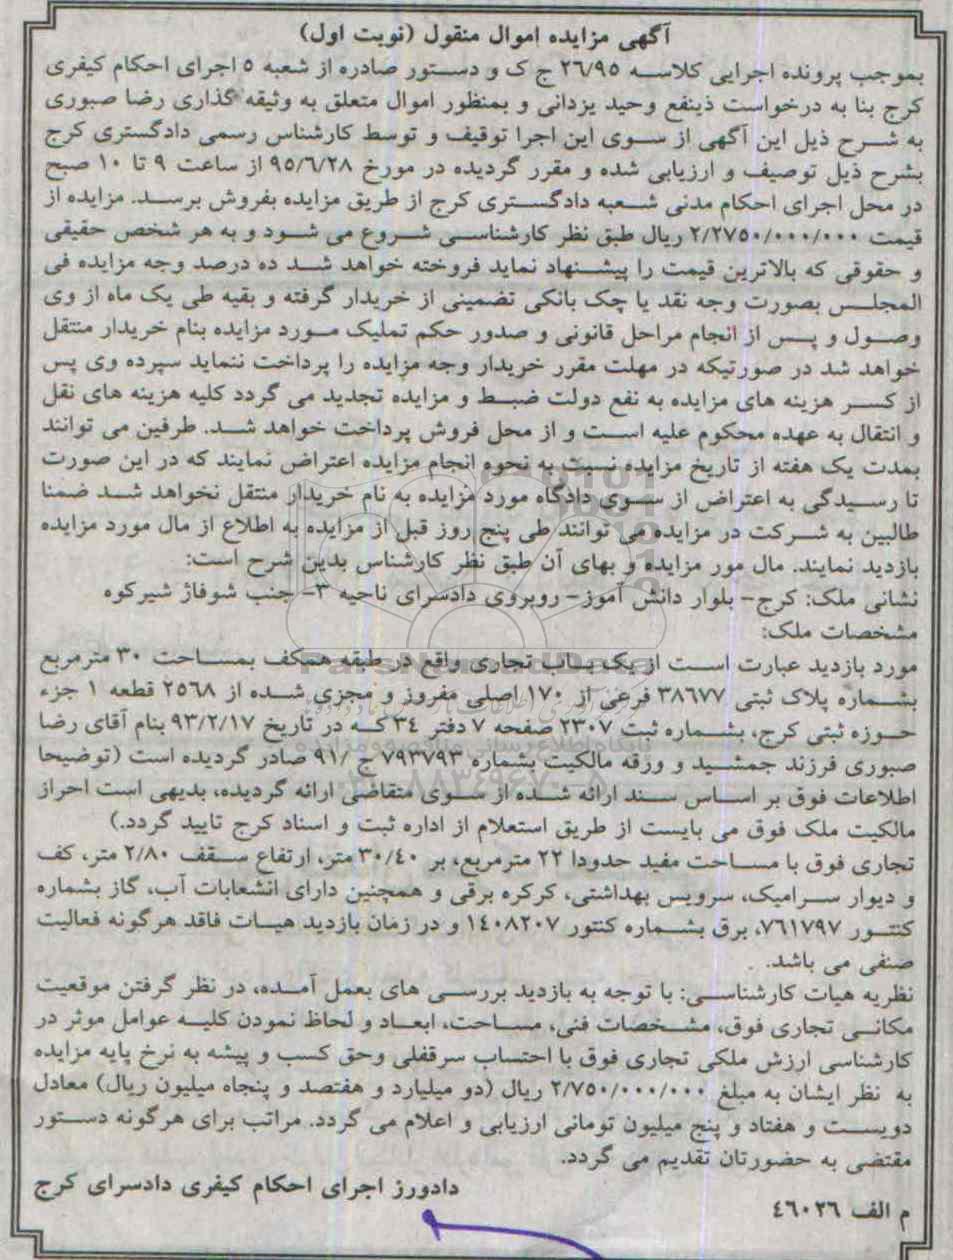 آگهی مزایده اموال منقول (نوبت اول)
بموجب پرونده اجرایی کلاسه ۲۶/۹۵ ج ک و دستور صادره از شعبه ۵ اجرای احکام کیفری
کرج بنا به درخواست ذینفع وحید یزدانی و بمنظور اموال متعلق به وثیقه گذاری رضا صبوری
به شرح ذیل این آگهی از سوی این اجرا توقیف و توسط کارشناس رسمی دادگستری کرج
بشرح ذیل توصیف و ارزیابی شده و مقرر گردیده در مورخ ۹۵/۶/۲۸ از ساعت ۹ تا ۱۰ صبح
در محل اجرای احکام مدنی شعبه دادگستری کرج از طریق مزایده بفروش برسد. مزایده از
قیمت ۲/۲۷۵۰/۰۰۰/۰۰۰ ریال طبق نظر کارشناسی شروع می شود و به هر شخص حقیقی
و حقوقی که بالاترین قیمت را پیشنهاد نماید فروخته خواهد شد ده درصد وجه مزایده فی
المجلس بصورت وجه نقد یا چک بانکی تضمینی از خریدار گرفته و بقیه طی یک ماه از وی
وصول و پس از انجام مراحل قانونی و صدور حکم تملیک مورد مزایده بنام خریدار منتقل
خواهد شد در صورتیکه در مهلت مقرر خریدار وجه مزایده را پرداخت ننماید سپرده وی پس
از کسر هزینه های مزایده به نفع دولت ضبط و مزایده تجدید می گردد کلیه هزینه های نقل
و انتقال به عهده محکوم علیه است و از محل فروش پرداخت خواهد شد. طرفین می توانند
بمدت یک هفته از تاریخ مزایده نسبت به نحوه انجام مزایده اعتراض نمایند که در این صورت
تا رسیدگی به اعتراض از سوی دادگاه مورد مزایده به نام خریدار منتقل نخواهد شد ضمنا
طالبین به شرکت در مزایده می توانند طی پنج روز قبل از مزایده به اطلاع از مال مورد مزایده
بازدید نمایند. مال مور مزایده و بهای آن طبق نظر کارشناس بدین شرح است:
نشانی ملک: کرج- بلوار دانش آموز- روبروی دادسرای ناحیه ۳- جنب شوفاژ شیرکوه
مشخصات ملک:
مورد بازدید عبارت است از یک باب تجاری واقع در طبقه همکف بمساحت ۳۰ مترمربع
بشماره پلاک ثبتی ۳۸۶۷۷ فرعی از ۱۷۰ اصلی مفروز و مجزی شده از ۲۵۶۸ قطعه ۱ جزء
حوزه ثبتی کرج، بشماره ثبت ۲۳۰۷ صفحه ۷ دفتر ۳۴ که در تاریخ ۹۳/۲/۱۷ بنام آقای رضا
صبوری فرزند جمشید و ورقه مالکیت بشماره ۷۹۳۷۹۳ ج /۹۱ صادر گردیده است (توضیحا
اطلاعات فوق بر اساس سند ارائه شده از سوی متقاضی ارائه گردیده، بدیهی است احراز
مالکیت ملک فوق می بایست از طریق استعلام از اداره ثبت و اسناد کرج تایید گردد.)
تجاری فوق با مساحت مفید حدودا ۲۲ مترمربع، بر ۳۰/۴۰ متر، ارتفاع سقف ۲/۸۰ متر، کف
و دیوار سرامیک، سرویس بهداشتی، کرکره برقی و همچنین دارای انشعابات آب، گاز بشماره
کنتور ۷۶۱۷۹۷، برق بشماره کنتور ۱۴۰۸۲۰۷ و در زمان بازدید هیات فاقد هرگونه فعالیت
صنفی می باشد.
نظریه هیات کارشناسی: با توجه به بازدید بررسی های بعمل آمده، در نظر گرفتن موقعیت
مکانی تجاری فوق، مشخصات فنی، مساحت، ابعاد و لحاظ نمودن کلیه عوامل موثر در
کارشناسی ارزش ملکی تجاری فوق با احتساب سرقفلی وحق کسب و پیشه به نرخ پایه مزایده
به نظر ایشان به مبلغ ۲/۷۵۰/۰۰۰/۰۰۰ ریال (دو میلیارد و هفتصد و پنجاه میلیون ریال) معادل
دویست و هفتاد و پنج میلیون تومانی ارزیابی و اعلام می گردد. مراتب برای هرگونه دستور
مقتضی به حضورتان تقدیم می گردد.
دادورز اجرای احکام کیفری دادسرای کرج
م الف ۴۶۰۲۶
ParsNamadData